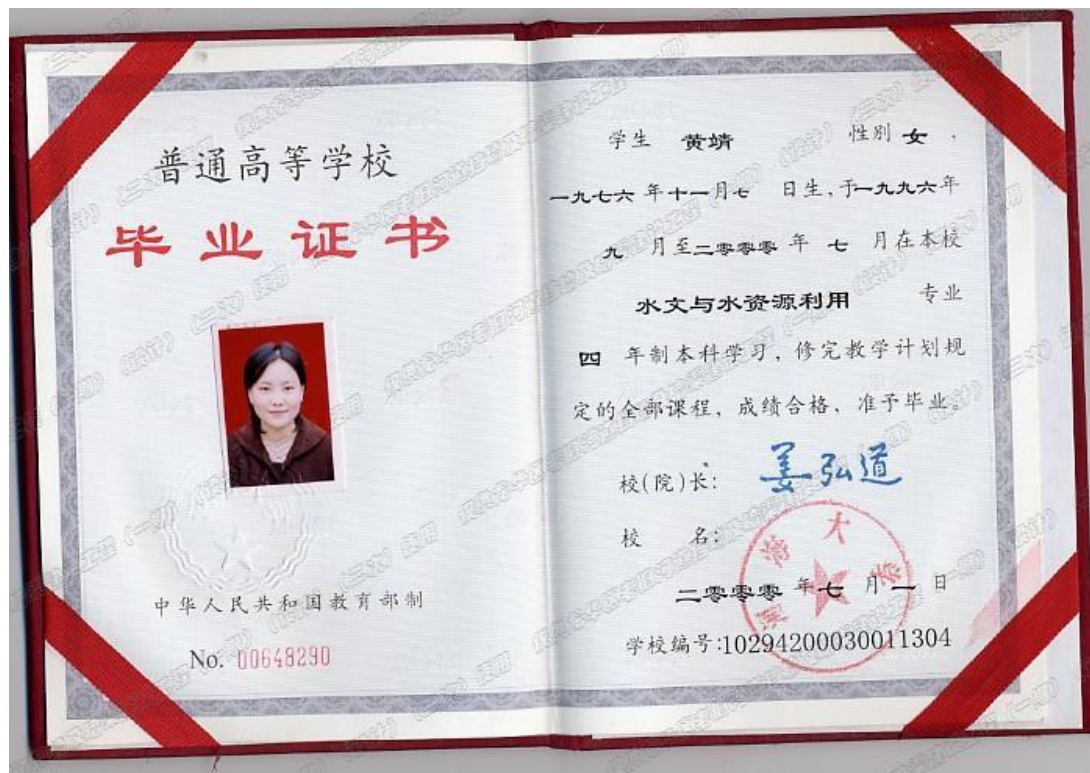 普通高等学校
毕业证书
中华人民共和国教育部制
No. 00648290
学生 黄靖 性别 女,
一九七六 年十一月七 日生,于一九九六年
九 月至二零零零 年 七 月在本校
水文与水资源利用 专业
四 年制本科学习,修完教学计划规
定的全部课程,成绩合格,准予毕业。
校(院)长: 姜弘道
校 名:
河海大学
二零零零 年七 月 一 日
学校编号:10294200030011304